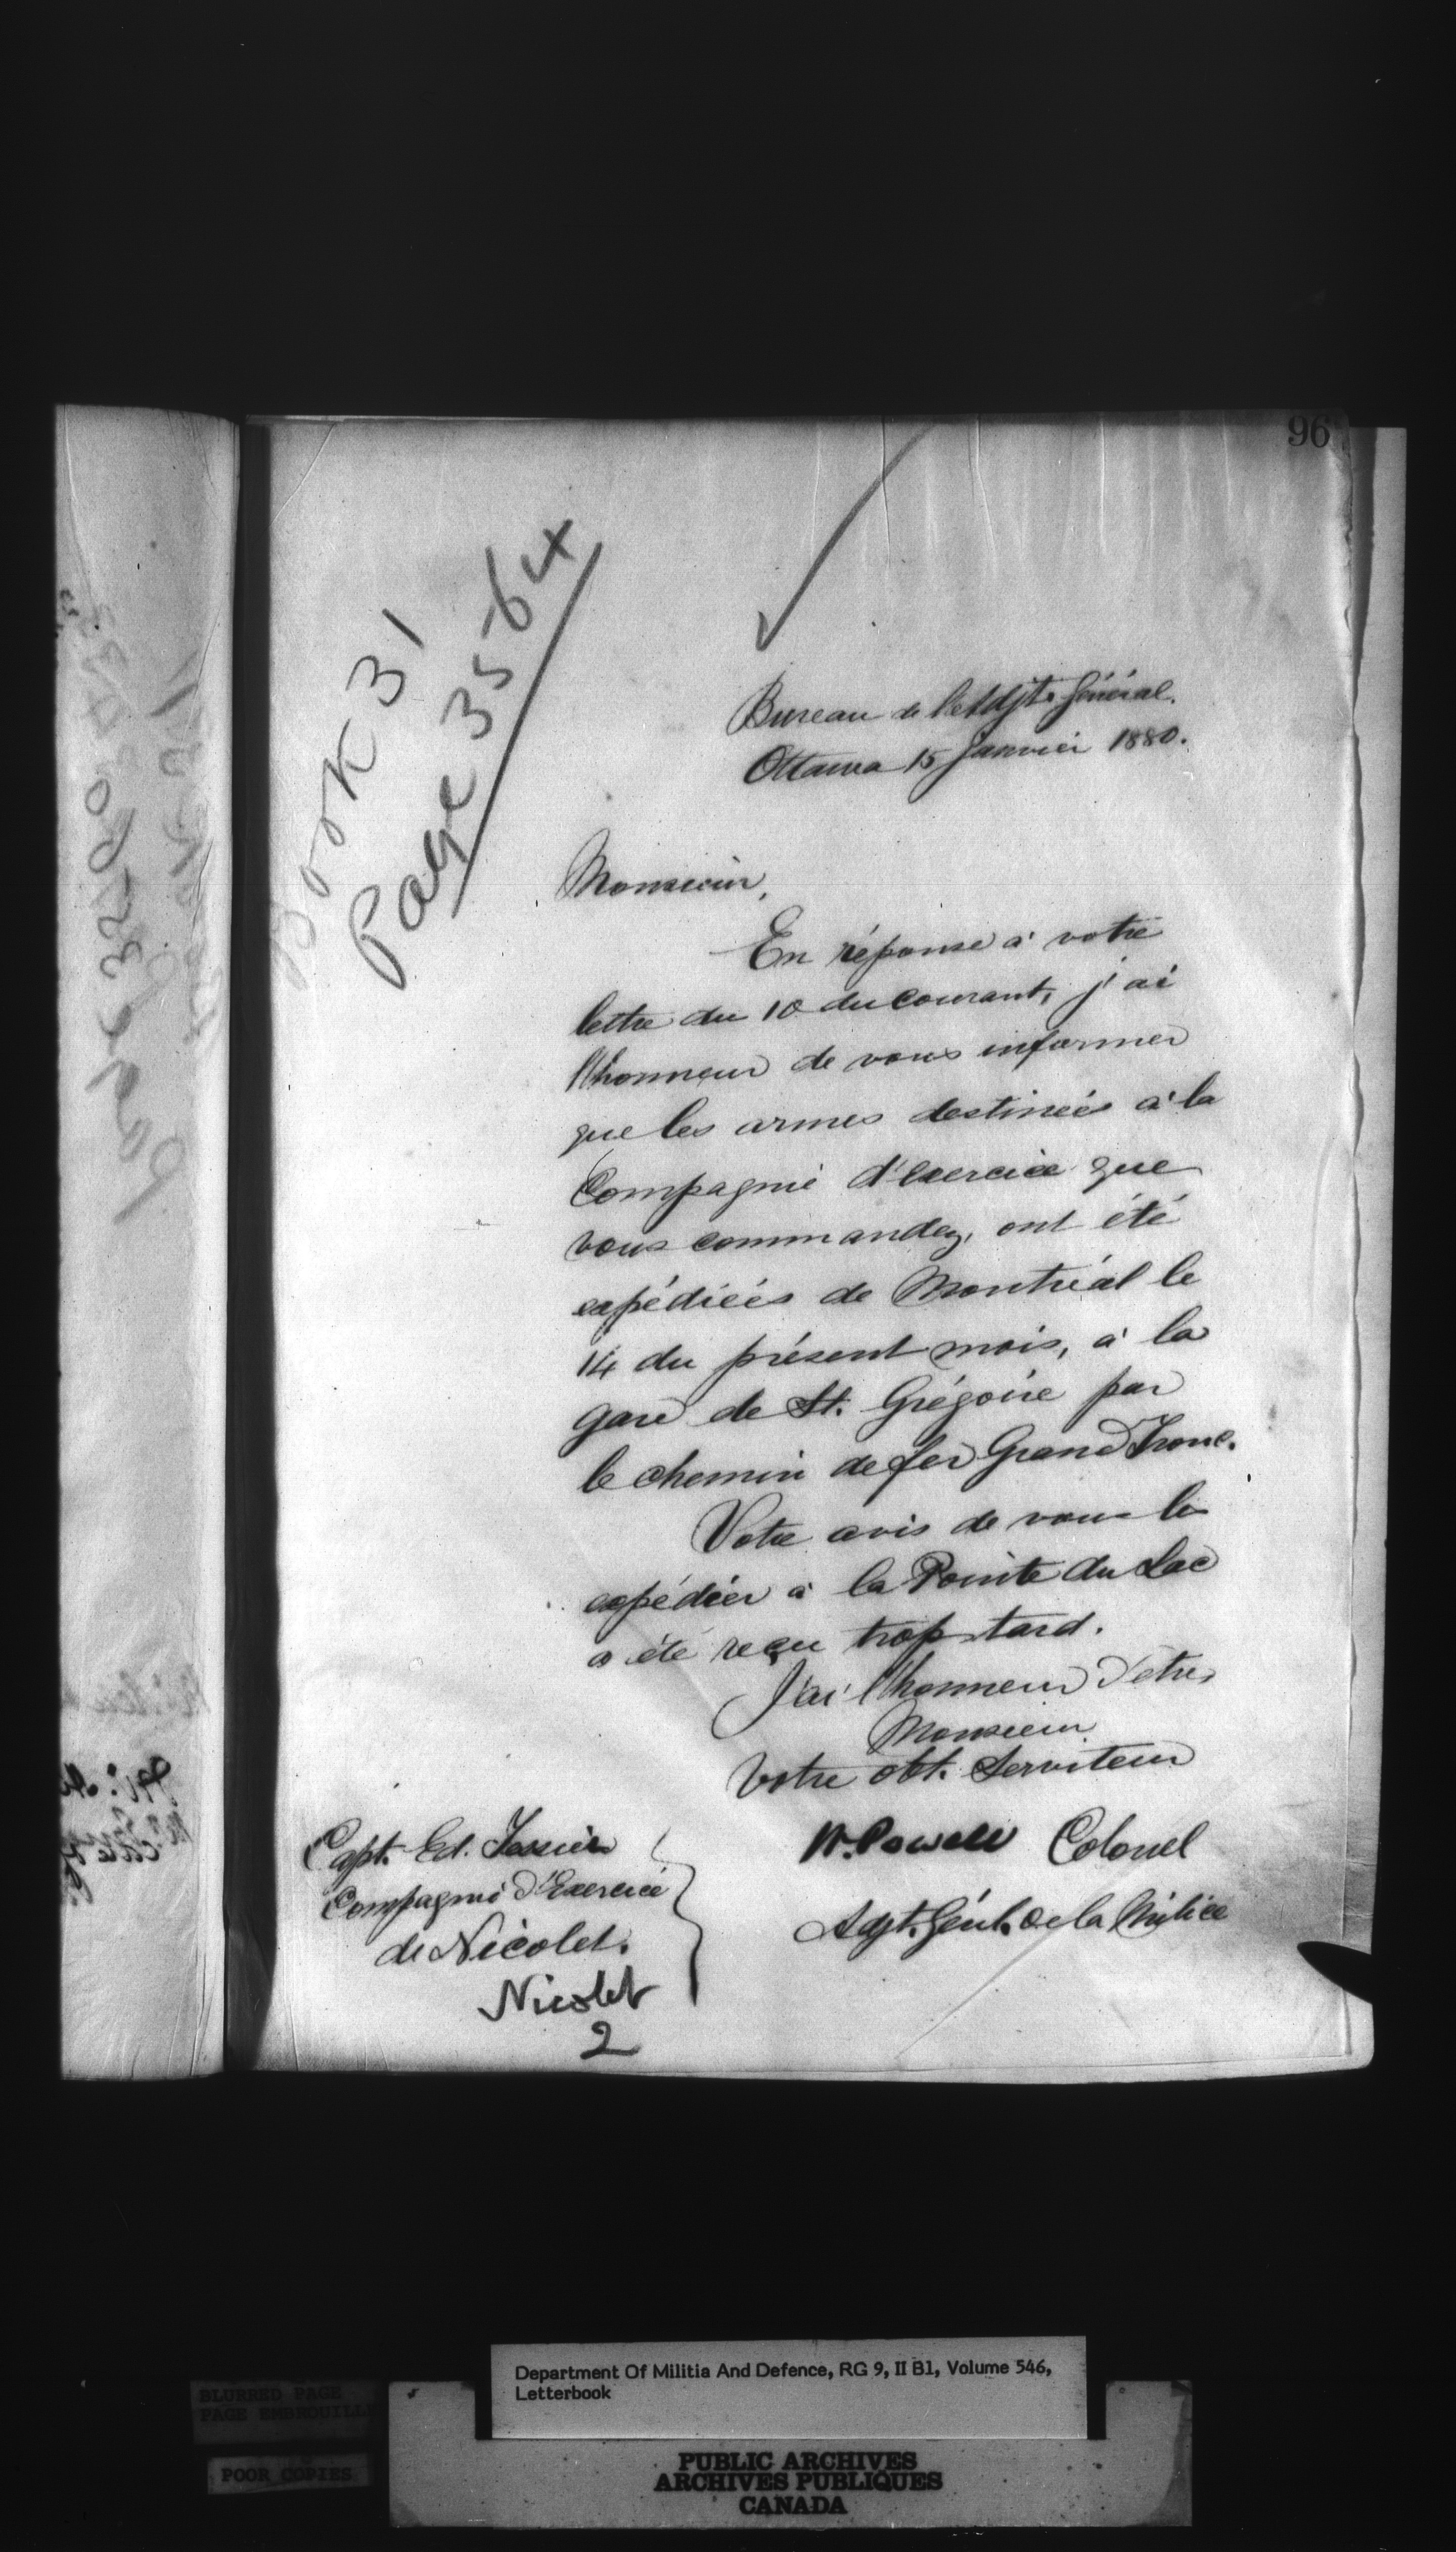 96
Book 31
Page 35-64
Bureau de l'Adjt. Général.
Ottawa 15 Janvier 1880.
Monsieur,
En réponse à votre
lettre du 10 du courant, j'ai
l'honneur de vous informer
que les armes destinées à la
Compagnie d'Exercice que
vous commandez, ont été
expédiées de Montréal le
14 du présent mois, à la
gare de St. Grégoire par
le chemin de fer Grand Tronc.
Votre avis de vous les
expédier à la Pointe du Lac
a été reçu trop tard.
J'ai l'honneur d'être,
Monsieur
Votre obt. Serviteur
W. Powell Colonel
Adjt. Génl. de la Milice
Capt. Ed.
Compagnie d'Exercice
de Nicolet.
Nicolet
2
Department Of Militia And Defence, RG 9, II B1, Volume 546,
Letterbook
BLURRED PAGE
PAGE EMBROUILLE
POOR COPIES
PUBLIC ARCHIVES
ARCHIVES PUBLIQUES
CANADA